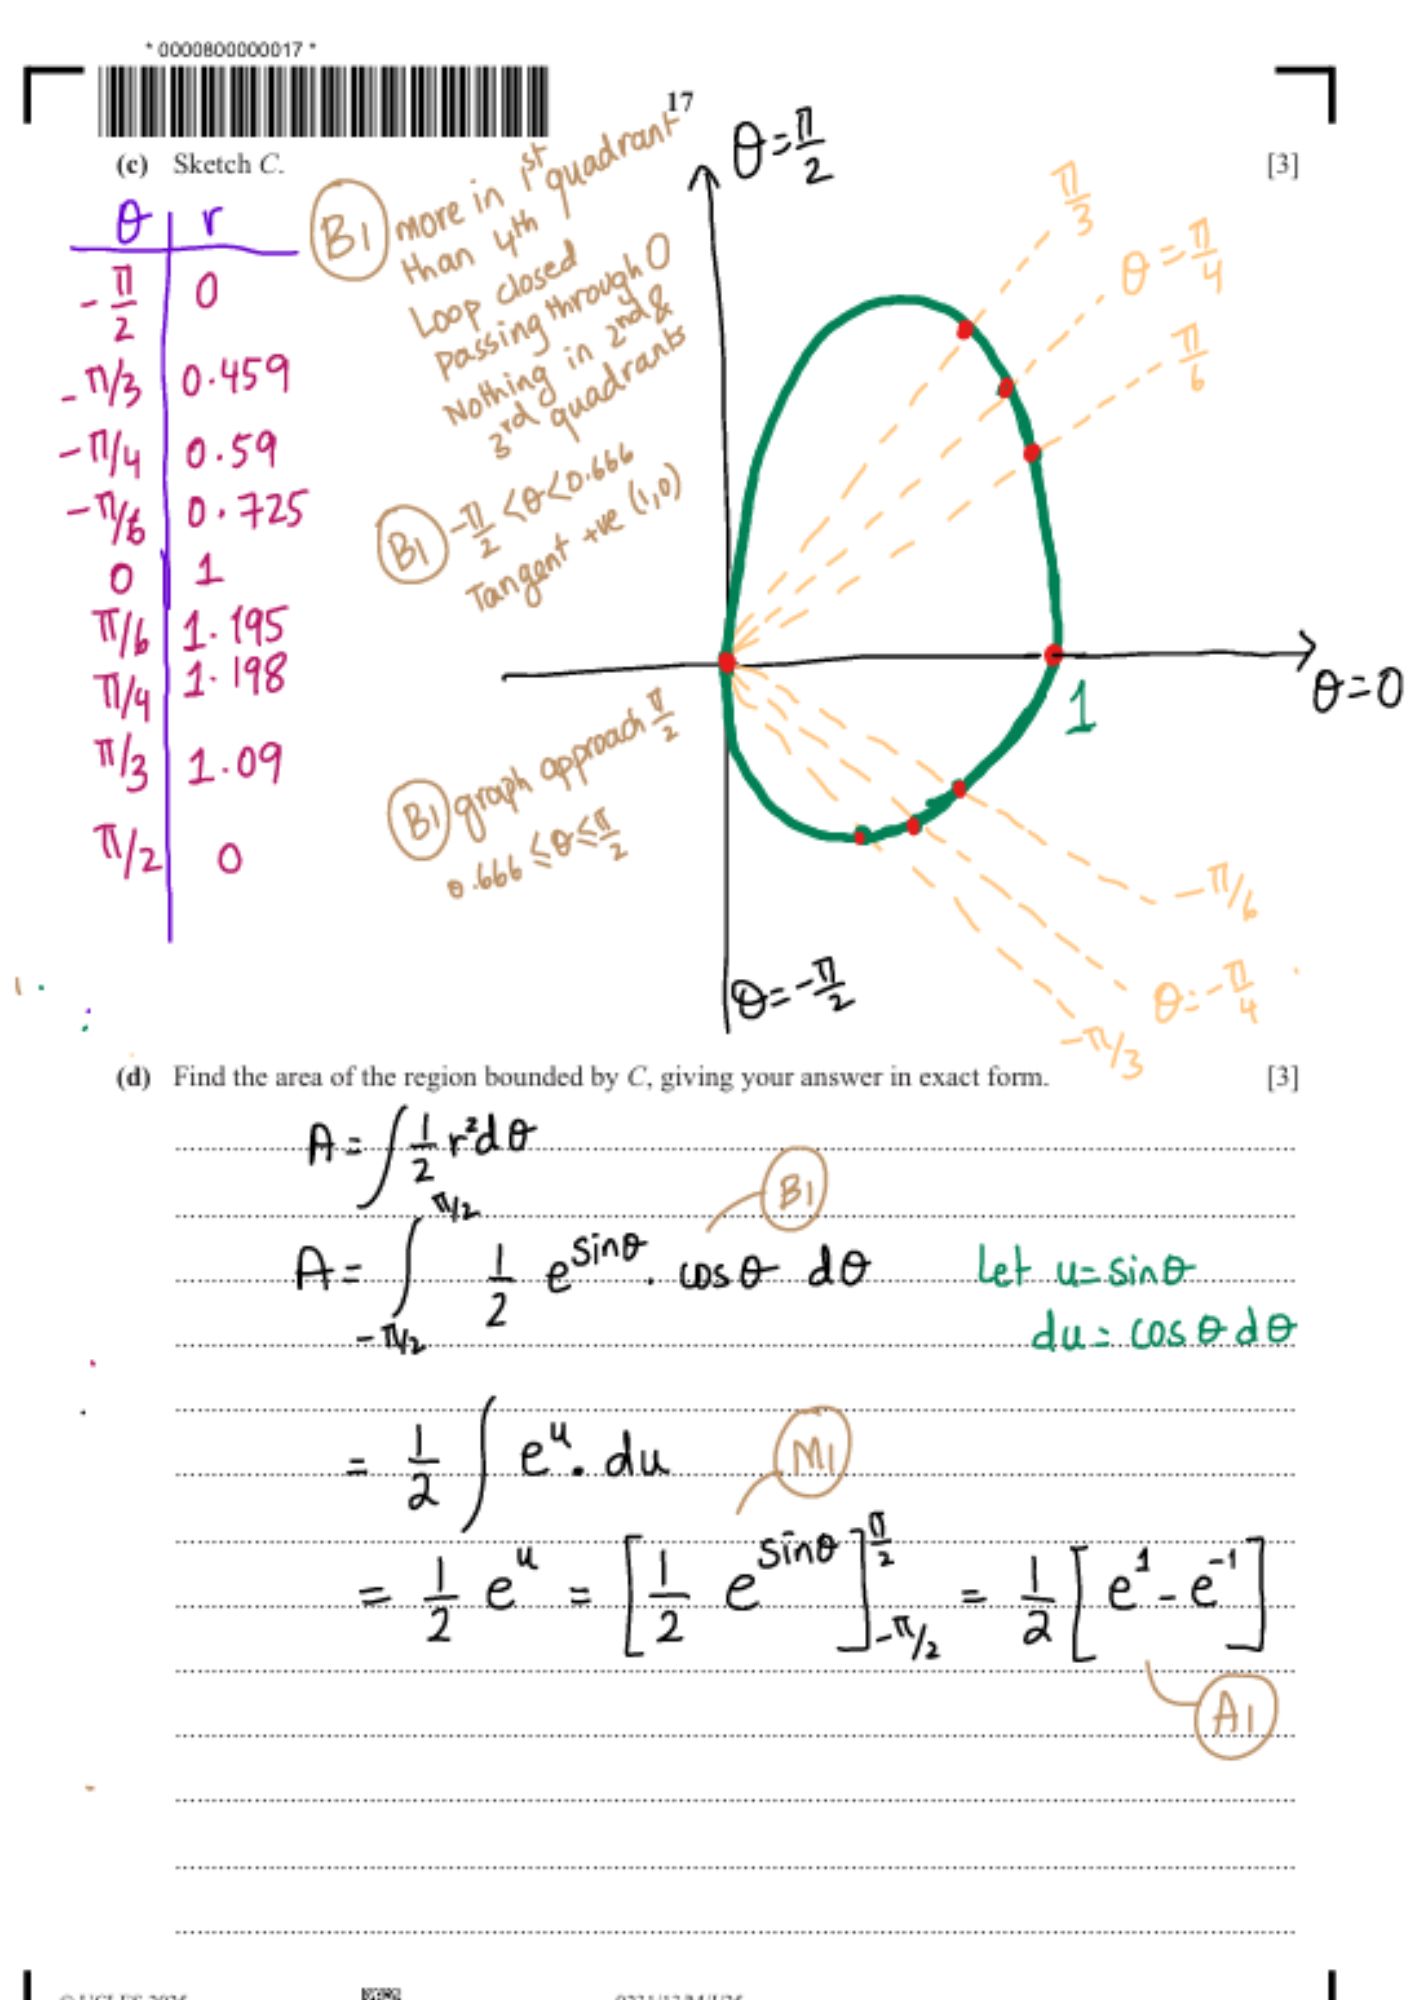 * 0000800000017 *
17
(c) Sketch C. [3]
θ r
-π/2 0
-π/3 0.459
-π/4 0.59
-π/6 0.725
0 1
π/6 1.195
π/4 1.198
π/3 1.09
π/2 0
B1 more in 1st quadrant
than 4th
Loop closed
passing through O
Nothing in 2nd &
3rd quadrants
B1 -π/2 <θ<0.666
Tangent +ve (1,0)
B1 graph approach π/2
0.666 ≤θ≤π/2
θ=π/2
π/3
θ=π/4
π/6
θ=0
1
-π/6
θ=-π/4
-π/3
θ=-π/2
(d) Find the area of the region bounded by C, giving your answer in exact form. [3]
A=∫ 1/2 r² dθ
B1
A= ∫_{-π/2}^{π/2} 1/2 e^{sinθ} . cosθ dθ Let u=sinθ
du= cosθdθ
= 1/2 ∫ e^u . du M1
= 1/2 e^u = [1/2 e^{sinθ}]_{-π/2}^{π/2} = 1/2 [e^1 - e^{-1}]
A1